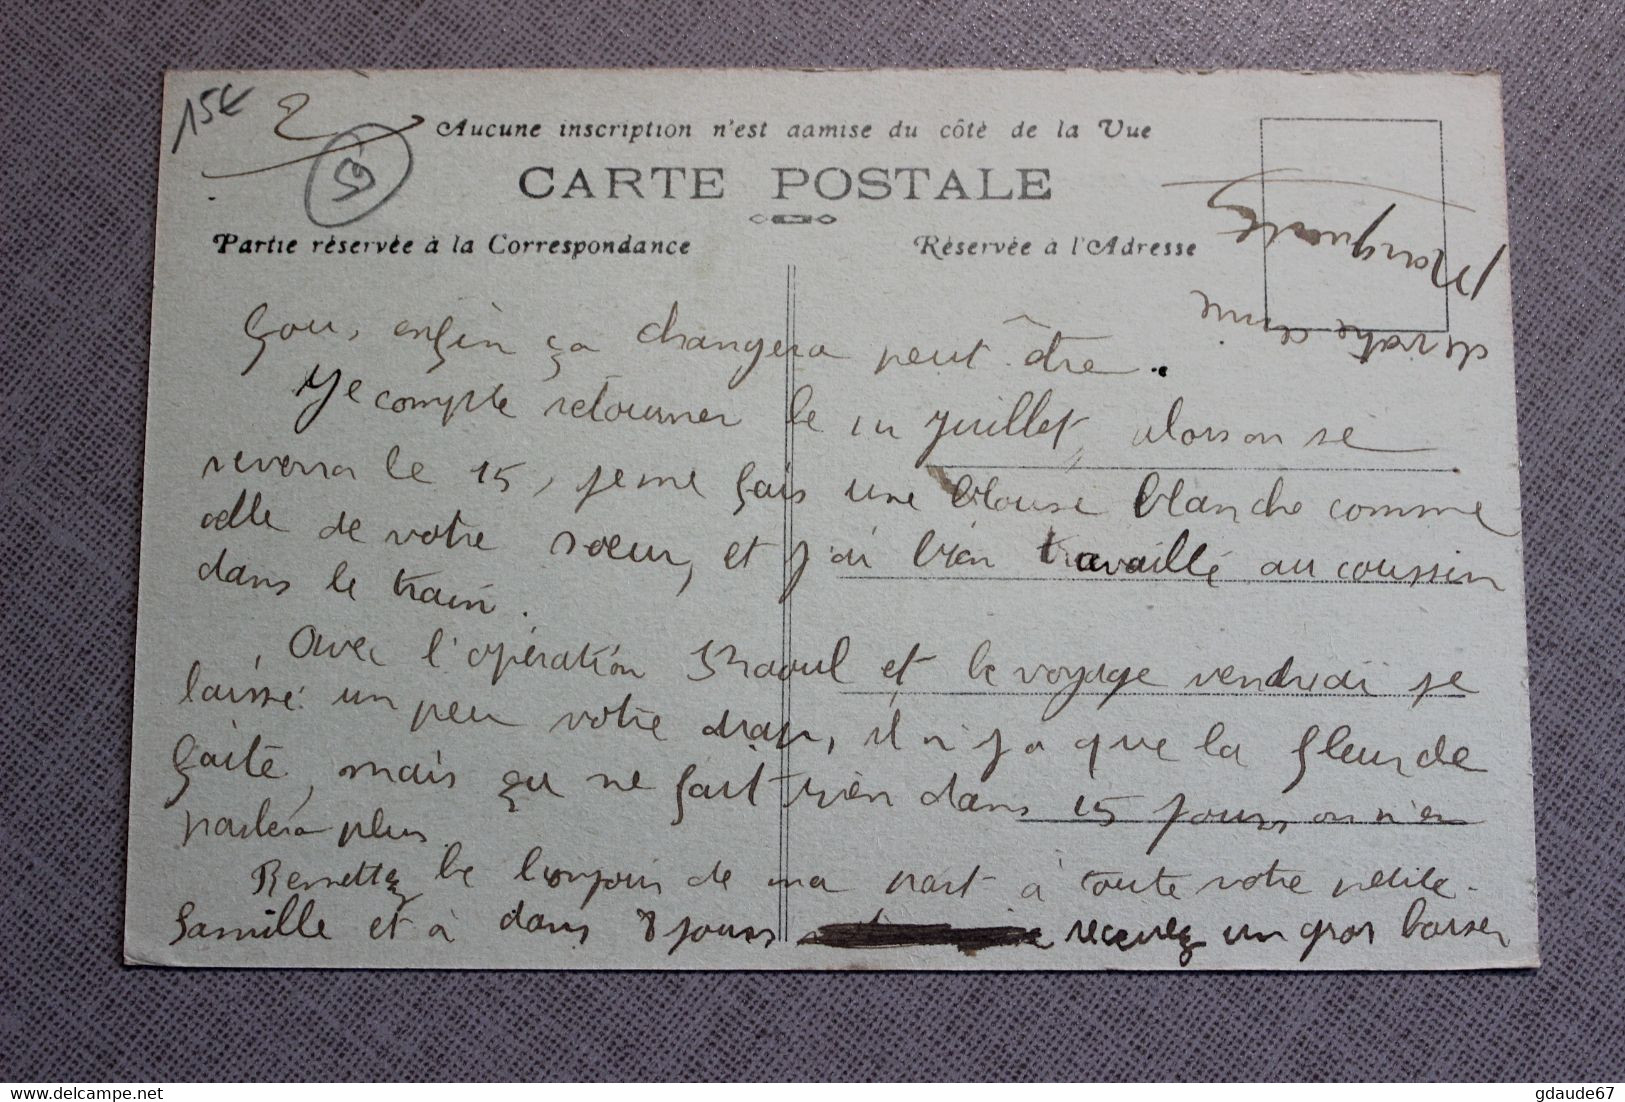 15€
2
59
Aucune inscription n'est admise du côté de la Vue
CARTE POSTALE
Partie réservée à la Correspondance
Réservée à l'Adresse
fou, enfin ça changera peut être.
Je compte retourner le juillet, alors on se
reverra le 15, je me fais une blouse blanche comme
celle de votre soeur, et j'ai bien travaillé au coussin
dans le train.
Avec l'opération Raoul et le voyage vendredi je
laisse un peu votre drap, il n'y a que la fleur de
faite, mais ça ne fait rien dans 15 jours on n'en
parlera plus
Remettez le bonjour de ma part à toute votre petite
famille et à dans 8 jours recevez un gros baiser
de votre amie
Marguerite
gdaude67